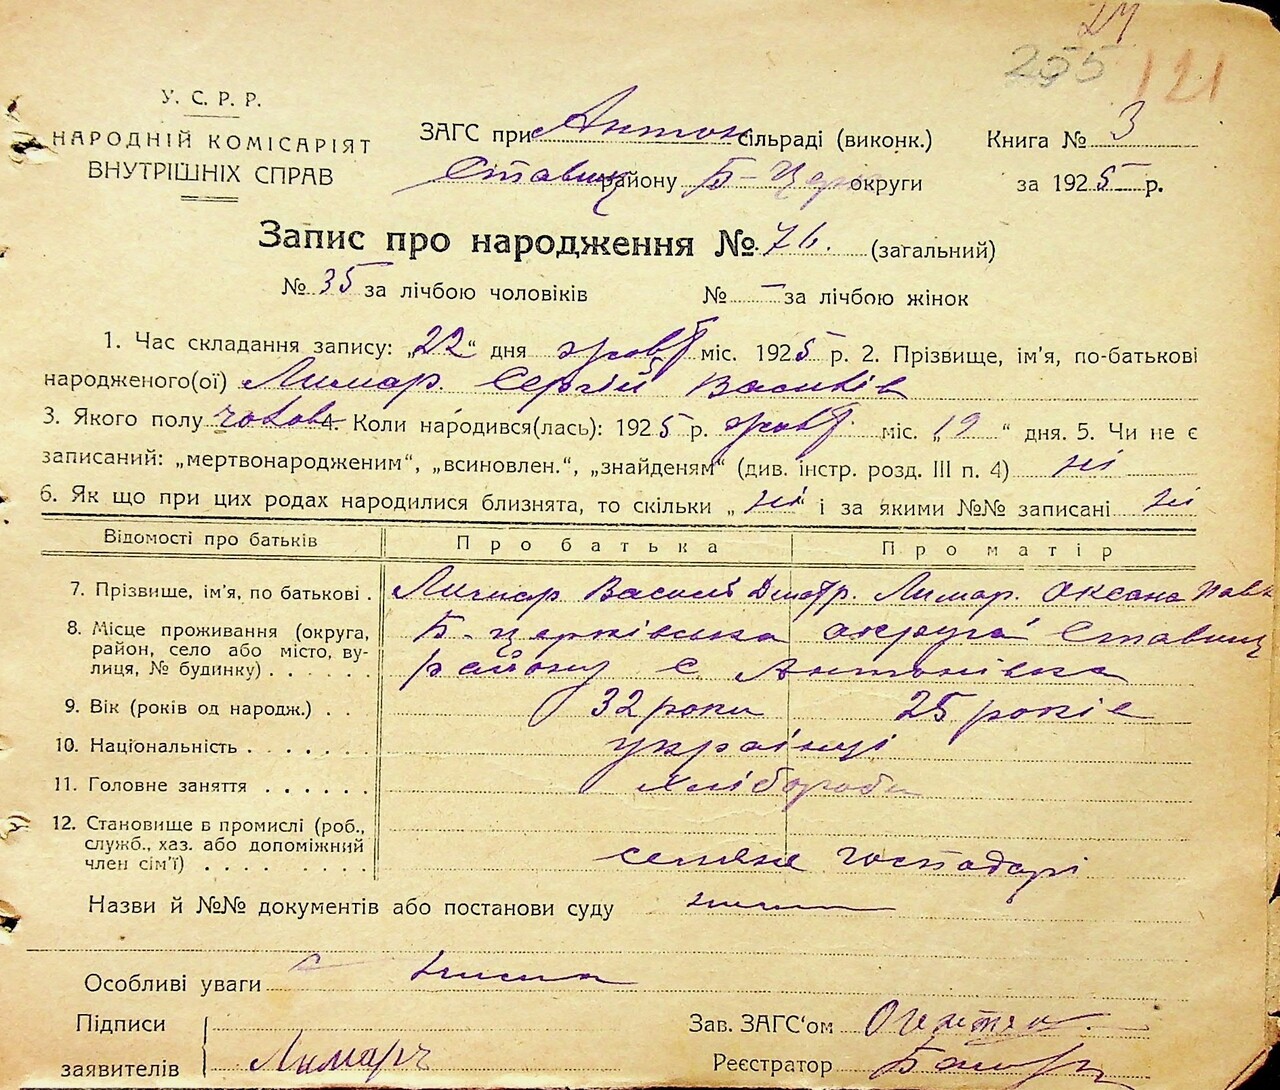 24
255 121
У. С. Р. Р.
НАРОДНІЙ КОМІСАРІЯТ
ВНУТРІШНІХ СПРАВ
ЗАГС при Антон сільраді (виконк.) Книга № 3
Ставищ району Б-Церк округи за 1925 р.
Запис про народження № 76. (загальний)
№ 35 за лічбою чоловіків № — за лічбою жінок
1. Час складання запису: „22“ дня жовт міс. 1925 р. 2. Прізвище, ім'я, по-батькові
народженого(ої) Лимар. Сергій Василів
3. Якого полу чолов 4. Коли народився(лась): 1925 р. жовт міс. „19“ дня. 5. Чи не є
записаний: „мертвонародженим“, „всиновлен.“, „знайденям“ (див. інстр. розд. III п. 4) ні
6. Як що при цих родах народилися близнята, то скільки „ні“ і за якими №№ записані ні
Відомості про батьків Про батька Про матір
7. Прізвище, ім'я, по батькові . Лимар Василь Дмитр. Лимар. Оксана Павл
8. Місце проживання (округа, Б-церківська округа Ставищ
район, село або місто, ву-
лиця, № будинку) . . . . . . району с Антонівка
9. Вік (років од народж.) . . 32 роки 25 років
10. Національність . . . . . . українці
11. Головне заняття . . . . . . хлібороби
12. Становище в промислі (роб.,
служб., хаз. або допоміжний
член сім'ї) . . . . . . . . селяне господарі
Назви й №№ документів або постанови суду
Особливі уваги
Підписи
заявителів Лимарь
Зав. ЗАГС'ом
Реєстратор